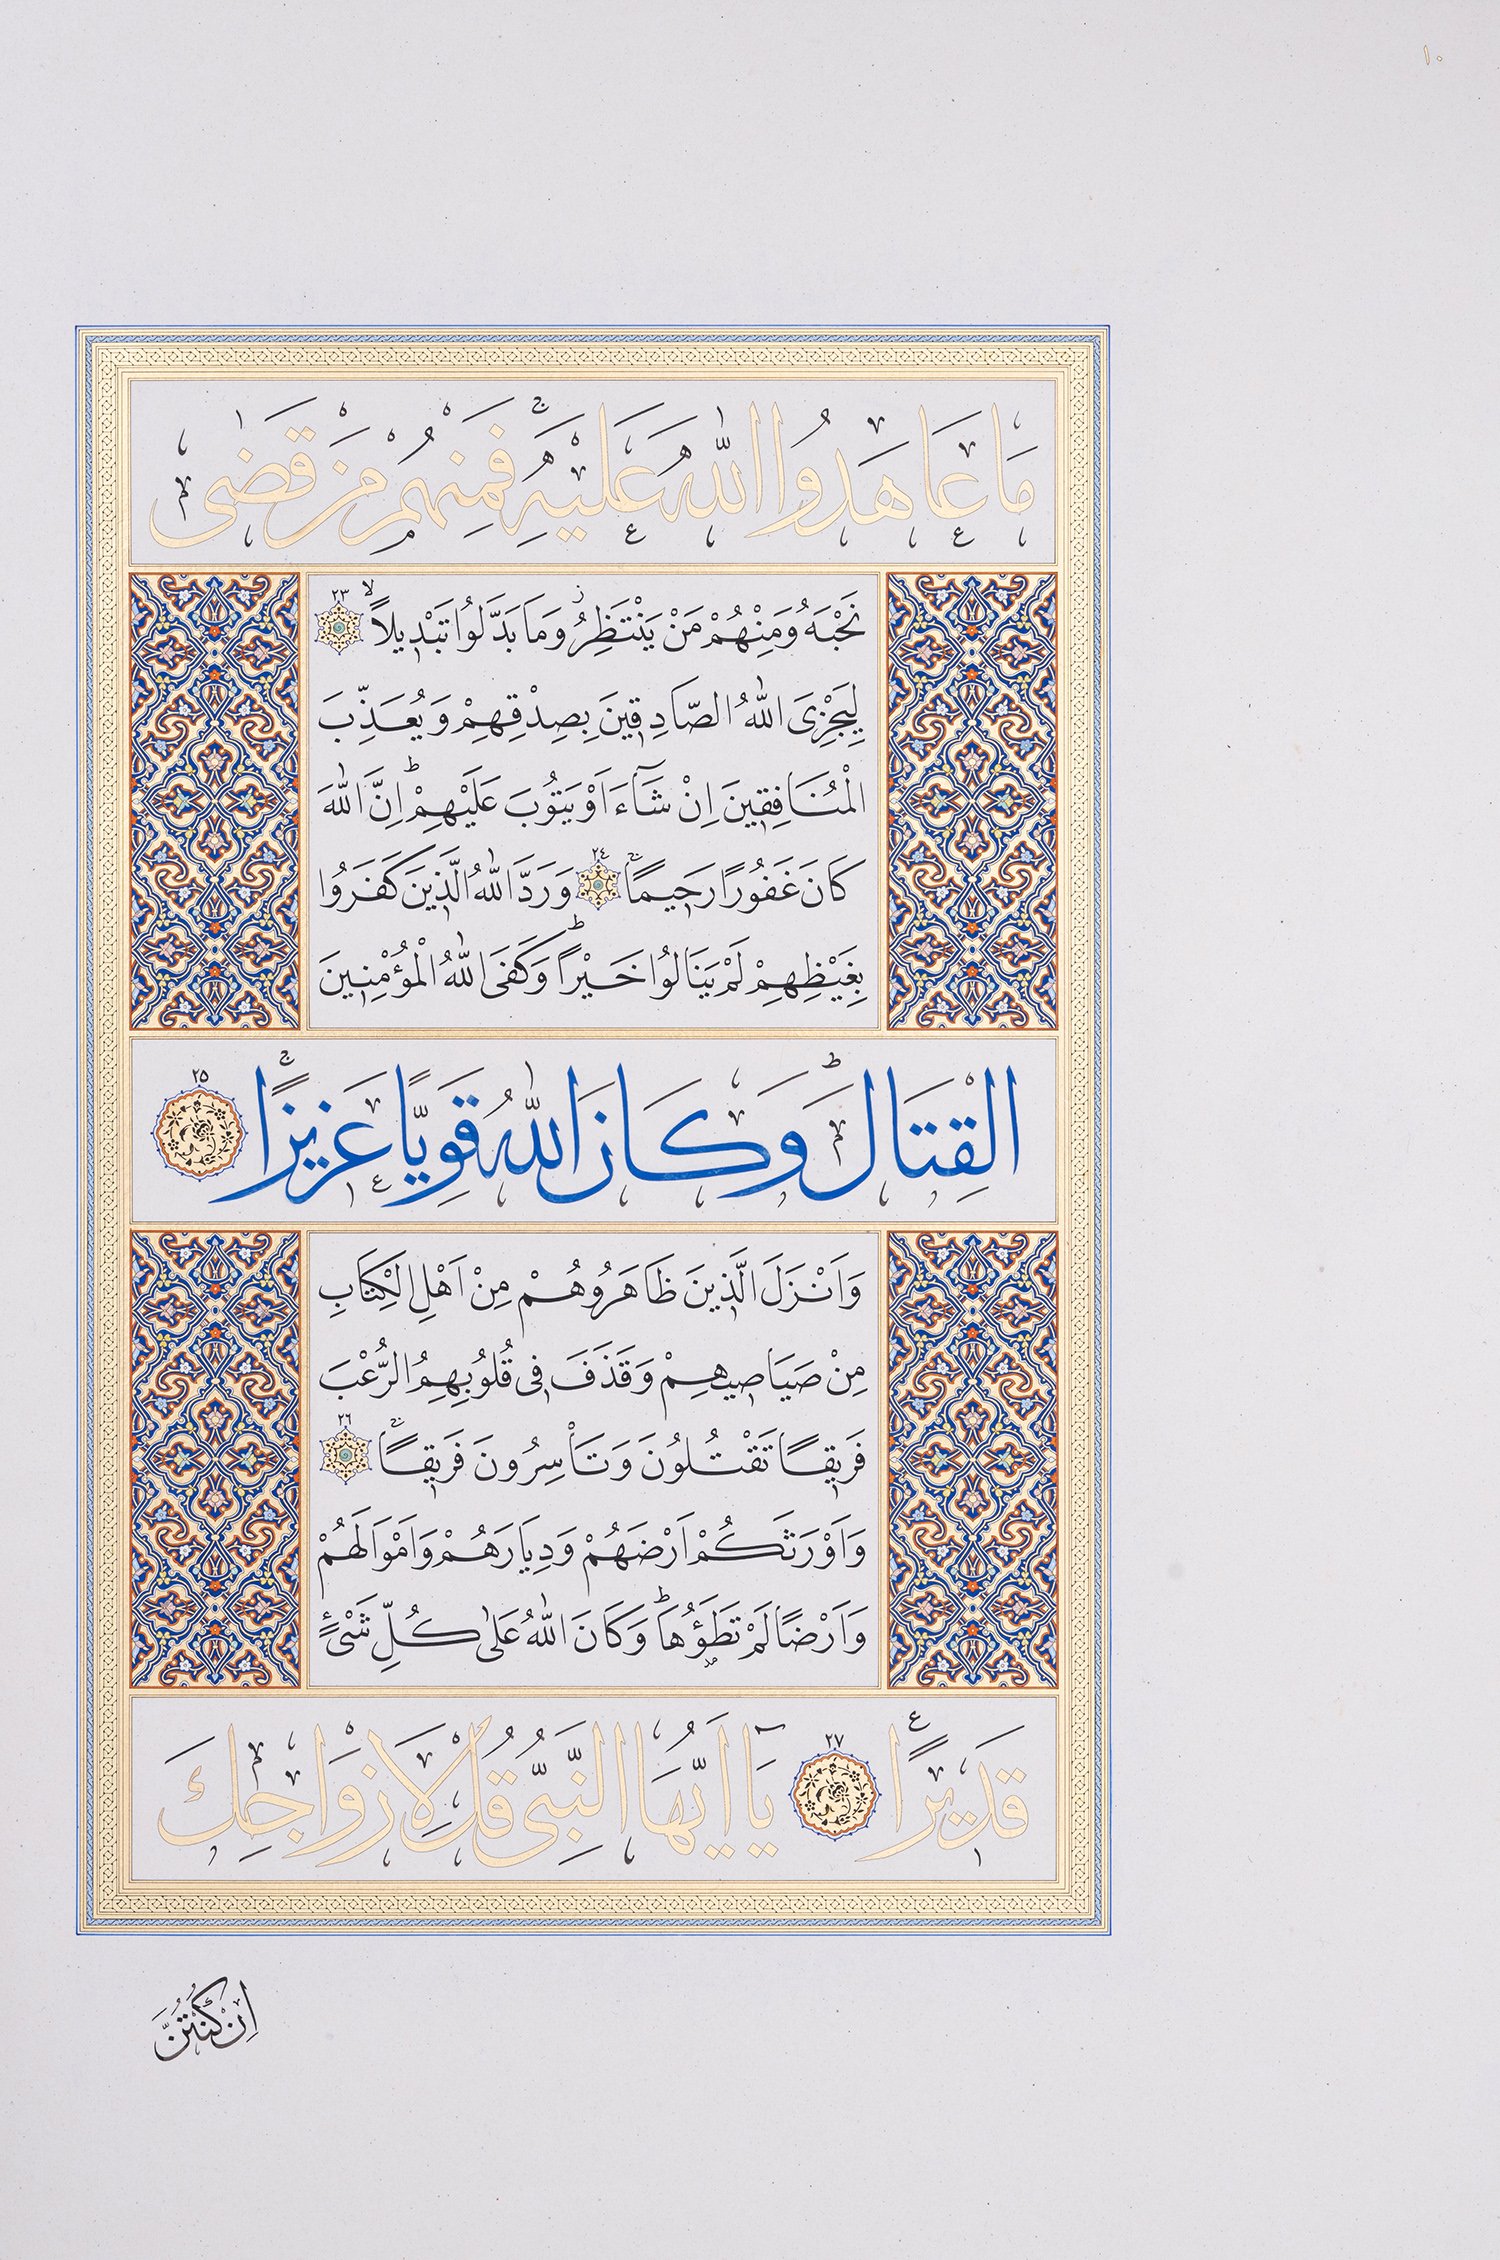 ١٠
مَا عَاهَدُوا اللّٰهَ عَلَيْهِۚ فَمِنْهُمْ مَنْ قَضٰى
نَحْبَهُ وَمِنْهُمْ مَنْ يَنْتَظِرُۘ وَمَا بَدَّلُوا تَبْدٖيلاًۙ ٢٣
لِيَجْزِىَ اللّٰهُ الصَّادِقٖينَ بِصِدْقِهِمْ وَيُعَذِّبَ
الْمُنَافِقٖينَ اِنْ شَٓاءَ اَوْ يَتُوبَ عَلَيْهِمْؕ اِنَّ اللّٰهَ
كَانَ غَفُورًا رَحٖيمًاۚ ٢٤ وَرَدَّ اللّٰهُ الَّذٖينَ كَفَرُوا
بِغَيْظِهِمْ لَمْ يَنَالُوا خَيْرًاؕ وَكَفَى اللّٰهُ الْمُؤْمِنٖينَ
الْقِتَالَؕ وَكَانَ اللّٰهُ قَوِيًّا عَزٖيزًاۚ ٢٥
وَاَنْزَلَ الَّذٖينَ ظَاهَرُوهُمْ مِنْ اَهْلِ الْكِتَابِ
مِنْ صَيَاصٖيهِمْ وَقَذَفَ فٖى قُلُوبِهِمُ الرُّعْبَ
فَرٖيقًا تَقْتُلُونَ وَتَأْسِرُونَ فَرٖيقًاۚ ٢٦
وَاَوْرَثَكُمْ اَرْضَهُمْ وَدِيَارَهُمْ وَاَمْوَالَهُمْ
وَاَرْضًا لَمْ تَطَؤُهَاؕ وَكَانَ اللّٰهُ عَلٰى كُلِّ شَىْءٍ
قَدٖيرًا ٢٧ يَٓا اَيُّهَا النَّبِىُّ قُلْ لِاَزْوَاجِكَ
اِنْ كُنْتُنَّ